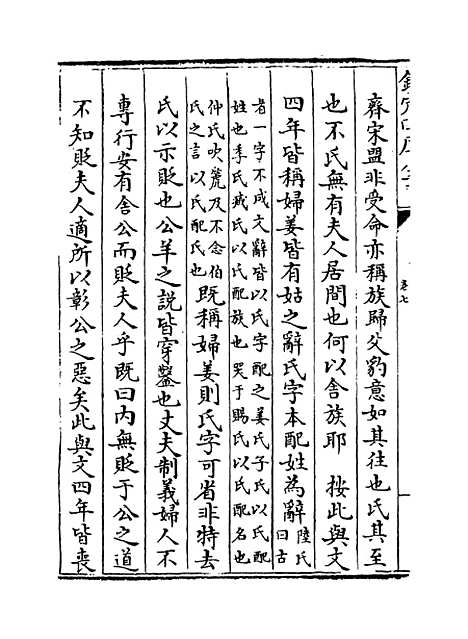 欽定四庫全書
卷七
齊宋盟非受命亦稱族歸父豹意如其往也氏其至
也不氏無有夫人居間也何以舍族耶 按此與文
四年皆稱婦姜皆有姑之辭氏字本配姓為辭陸氏曰古
者一字不成文辭皆以氏字配之姜氏子氏以氏配
姓也季氏臧氏以氏配族也哭于賜氏以氏配名也
仲氏吹篪及不念伯
氏之言以氏配氏也
既稱婦姜則氏字可省非特去
氏以示貶也公羊之說皆穿鑿也丈夫制義婦人不
專行安有舍公而貶夫人乎既曰內無貶于公之道
不知貶夫人適所以彰公之惡矣此與文四年皆喪